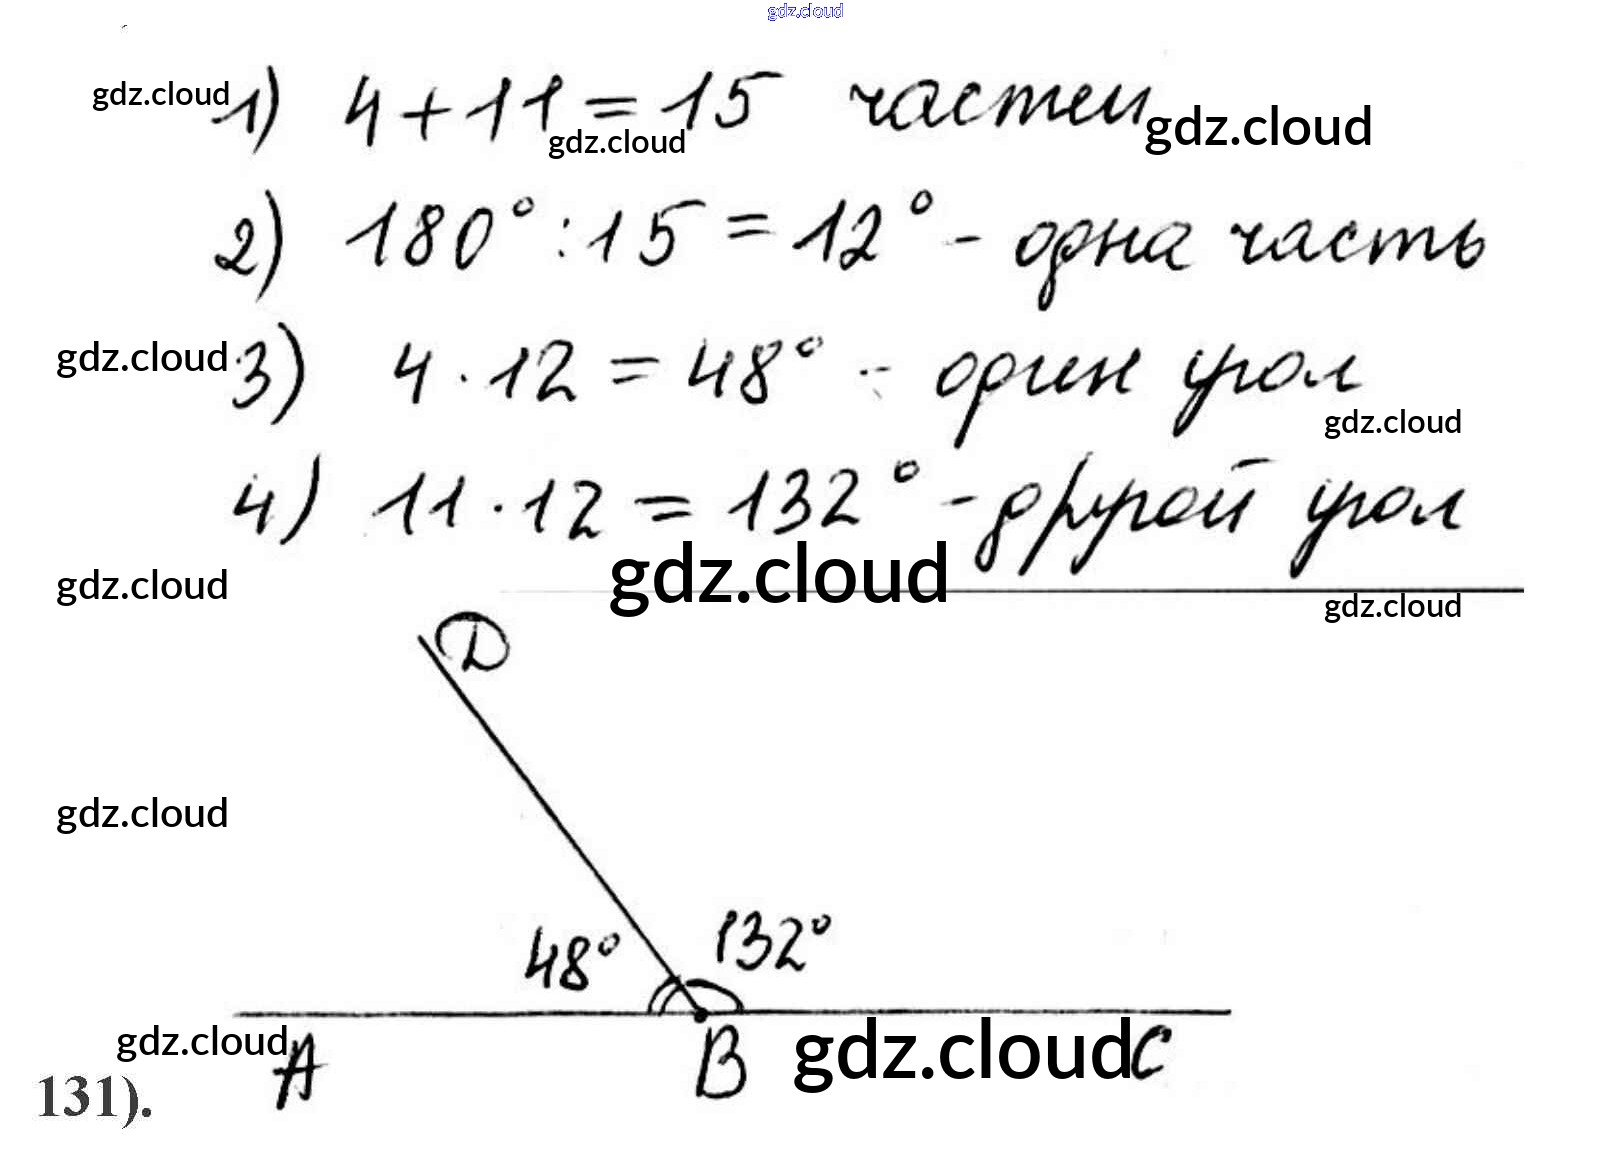 gdz.cloud
gdz.cloud 1) 4 + 11 = 15 частей gdz.cloud
gdz.cloud
2) 180° : 15 = 12° - одна часть
gdz.cloud 3) 4 · 12 = 48° - один угол
gdz.cloud
4) 11 · 12 = 132° - другой угол
gdz.cloud gdz.cloud
gdz.cloud
D
gdz.cloud
48° 132°
gdz.cloud A B gdz.cloud C
131).